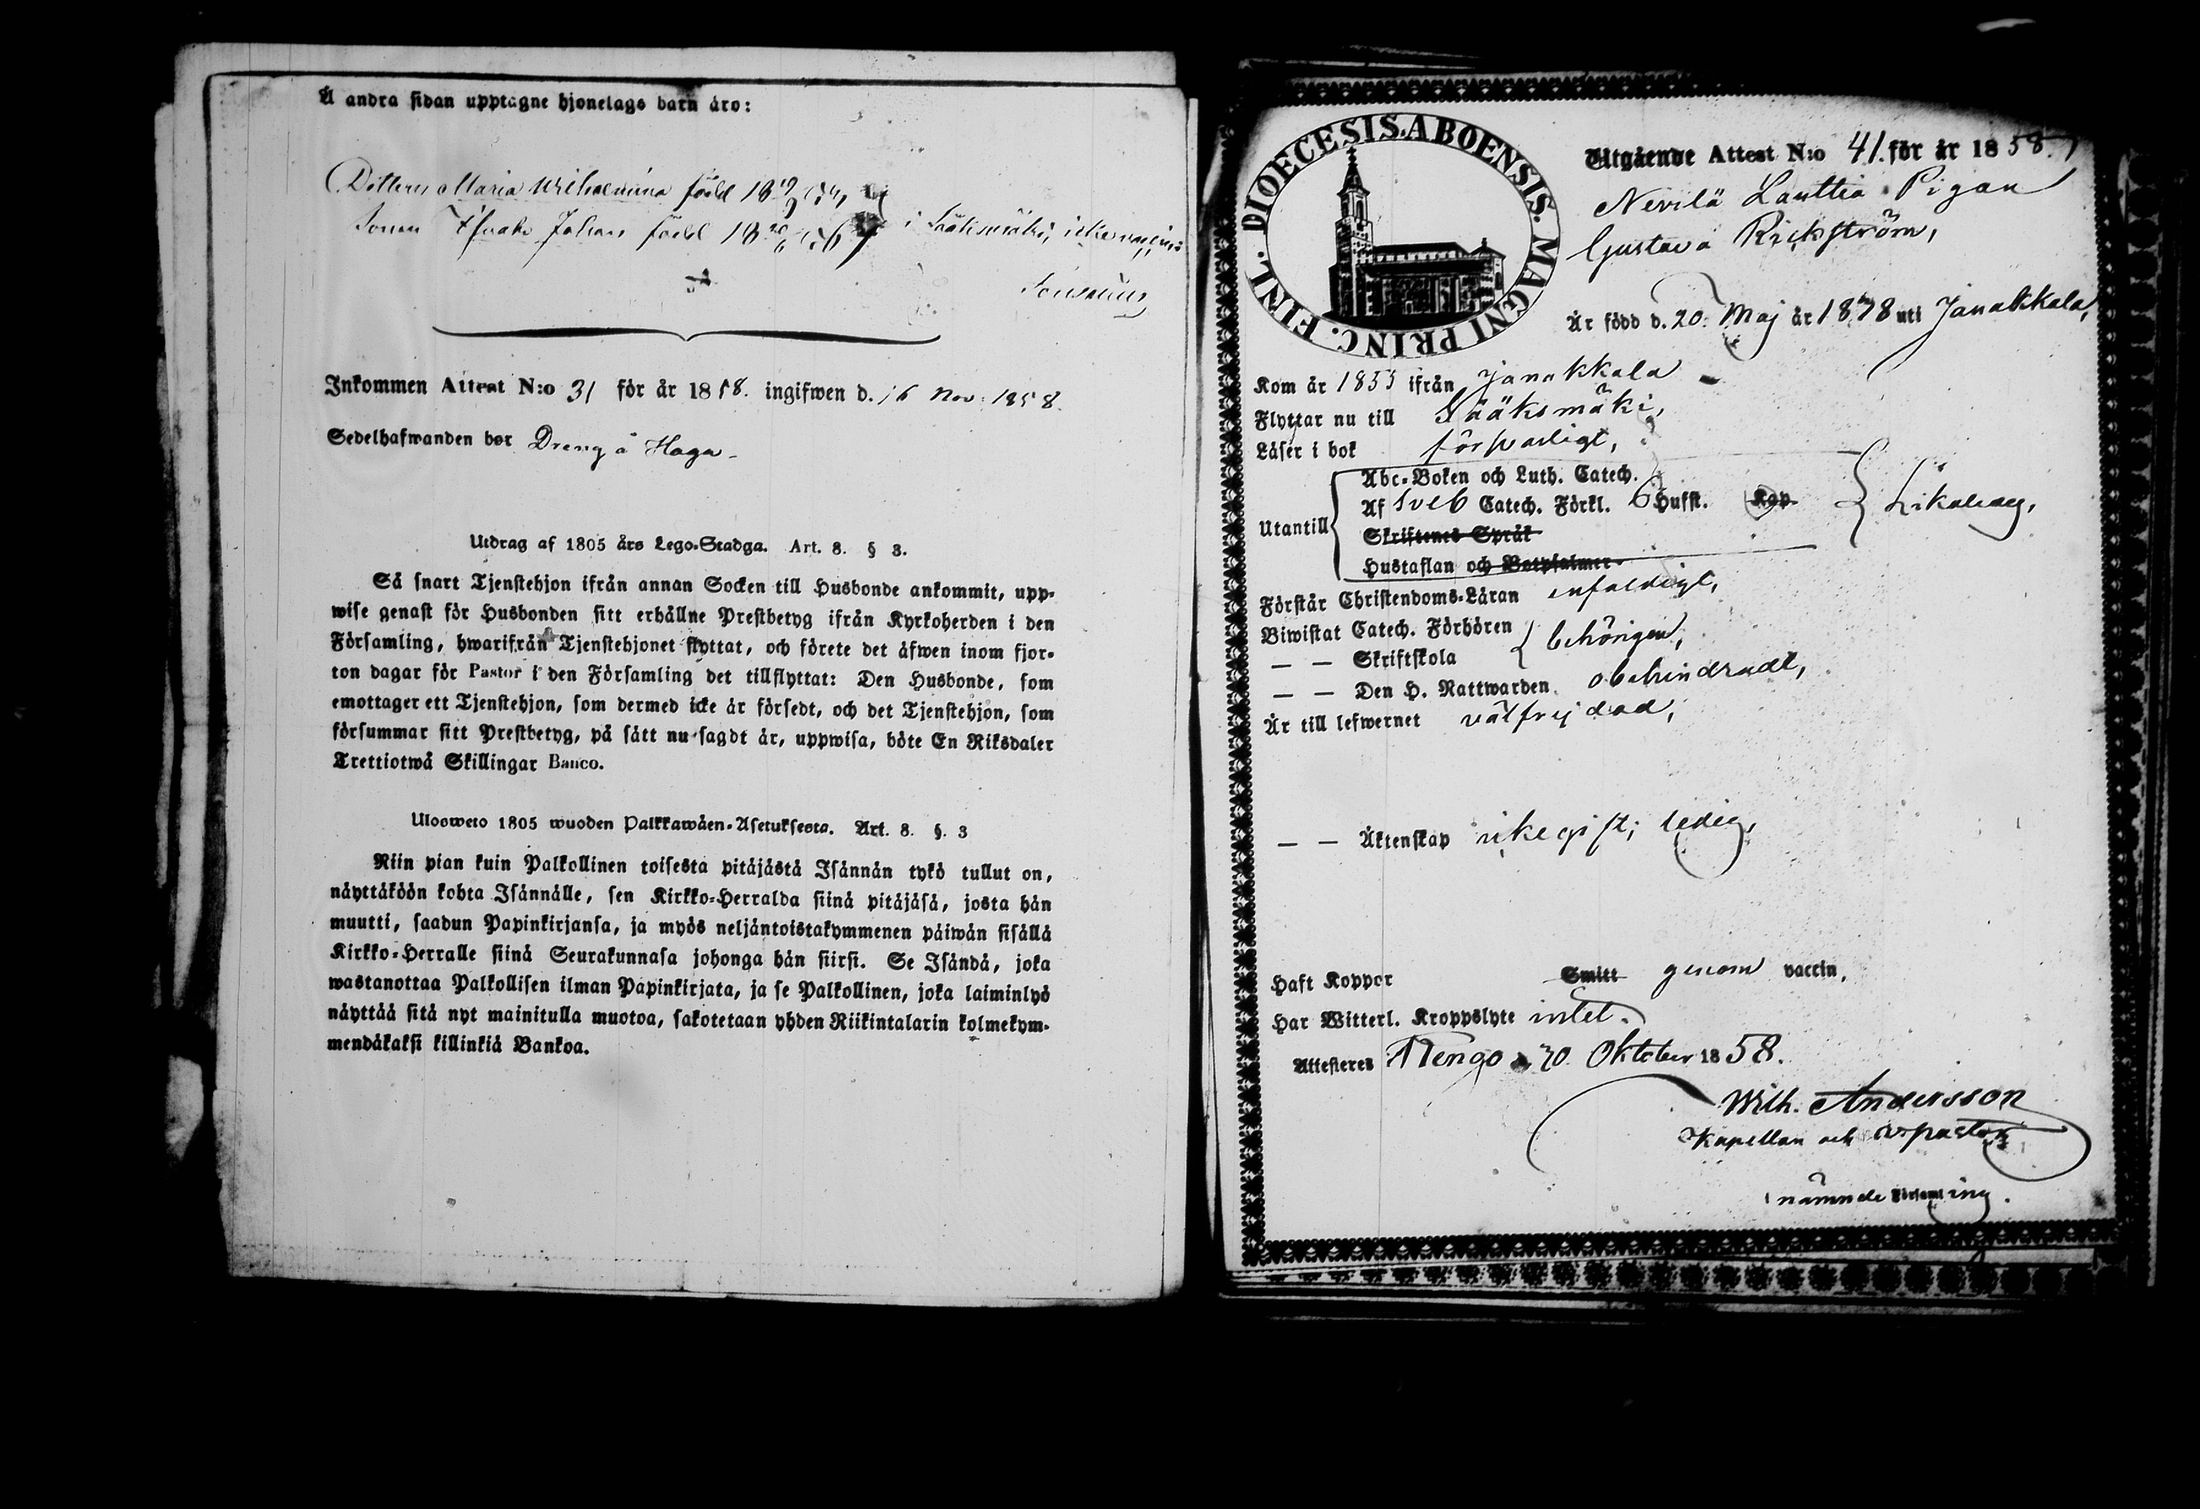 Å andra sidan upptagne hjonelags barn äro:
Dottern Maria Wilhelmina född 18
Sonen Johan född 18 i Sääksmäki, icke
Inkommen Attest N:o 31 för år 1858. ingifwen d. 16 Nov. 1858.
Sedelhafwanden bor Dreng å Haga
Utdrag af 1805 års Lego-Stadga. Art. 8. § 3.
Så snart Tjenstehjon ifrån annan Socken till Husbonde ankommit, upp-
wise genast för Husbonden sitt erhållne Prestbetyg ifrån Kyrkoherden i den
Församling, hwarifrån Tjenstehjonet flyttat, och förete det äfwen inom fjor-
ton dagar för Pastor i den Församling det tillflyttat: Den Husbonde, som
emottager ett Tjenstehjon, som dermed icke är försedt, och det Tjenstehjon, som
försummar sitt Prestbetyg, på sätt nu sagdt är, uppwisa, böte En Riksdaler
Trettiotwå Skillingar Banco.
Ulosweto 1805 wuoden Palkkawäen-Asetuksesta. Art. 8. §. 3
Niin pian kuin Palkollinen toisesta pitäjästä Isännän tykö tullut on,
näyttäköön kohta Isännälle, sen Kirkko-Herralda siinä pitäjäsä, josta hän
muutti, saadun Papinkirjansa, ja myös neljäntoistakymmenen päiwän sisällä
Kirkko-Herralle siinä Seurakunnasa johonga hän siirsi. Se Isändä, joka
wastanottaa Palkollisen ilman Papinkirjata, ja se Palkollinen, joka laiminlyö
näyttää sitä nyt mainitulla muotoa, sakotetaan yhden Riikintalarin kolmekym-
mendäkaksi killinkiä Bankoa.
DIOECESIS. ABOENSIS. MAGNI PRINC. FINL.
Utgående Attest N:o 41. för år 1858.
Nevilä Lauttia Pigan
Gustava Rickström,
Är född d. 20. Maj år 1838 uti Janakkala,
Kom år 1855 ifrån Janakkala
Flyttar nu till Sääksmäki,
Läser i bok försvarligt,
Utantill
Abc-Boken och Luth. Catech.
Af Sveb Catech. Förkl. 6 Hufst. Kap
Skriftenes Språk
Hustaflan och Botpsalmer
likaledes,
Förstår Christendoms-Läran enfaldigt,
Biwistat Catech. Förhören
— — Skriftskola
behörigen,
— — Den H. Nattwarden obehindradt,
Är till lefwernet välfrejdad,
— — Äktenskap icke gift; ledig,
Haft Koppor Smitt genom vaccin,
Har Witterl. Kroppslyte intet.
Attesteras Rengo d. 30 Oktober 1858.
Wilh. Andersson
Kapellan och v. pastor
i nämnde Församling.